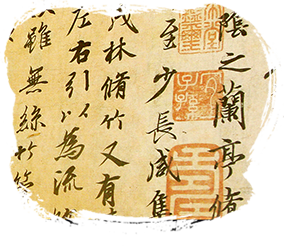 陰之蘭亭脩
至少長咸集
茂林脩竹又有
左右引以為流
雖無絲竹